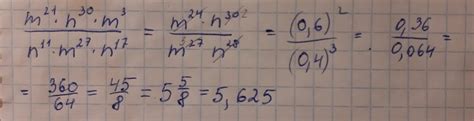 m²¹ · n³⁰ · m³ / n¹¹ · m²⁷ · n¹⁷ = m²⁴ · n³⁰ ² / m ³ ²⁷ n²⁸ = (0,6)² / (0,4)³ = 0,36 / 0,064 =
= 360/64 = 45/8 = 5 5/8 = 5,625